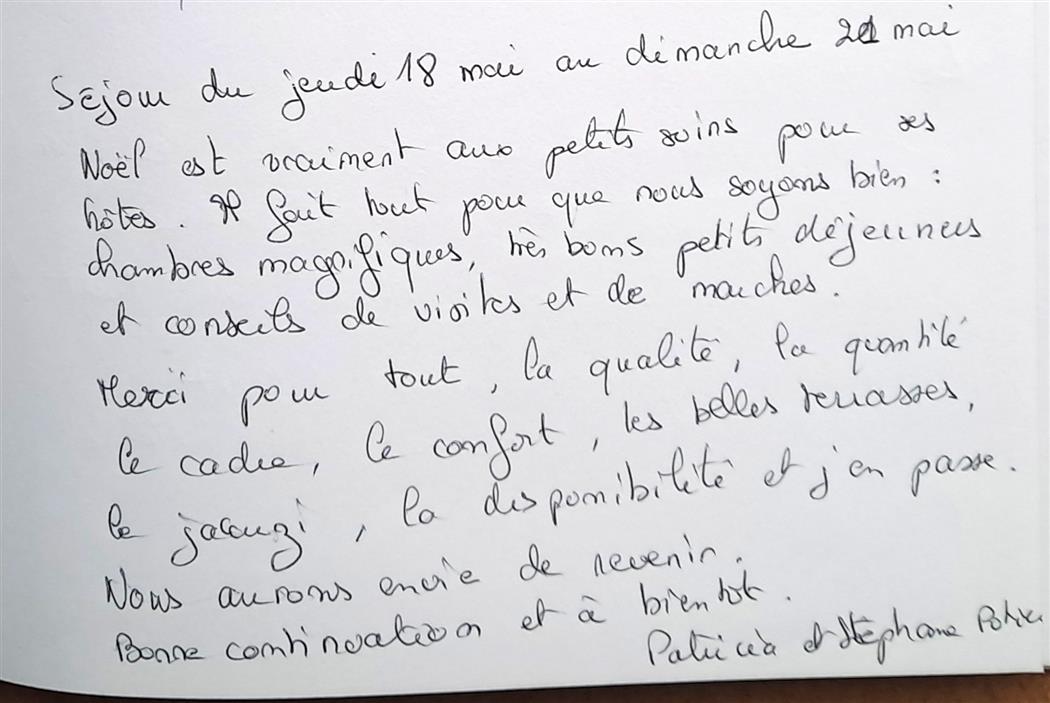 Séjour du jeudi 18 mai au dimanche 21 mai
Noël est vraiment aux petits soins pour ses
hôtes. Il fait tout pour que nous soyons bien :
chambres magnifiques, très bons petits déjeuners
et conseils de visites et de marches.
Merci pour tout, la qualité, la quantité
le cadre, le confort, les belles terrasses,
le jacuzi, la disponibilité et j'en passe.
Nous aurons envie de revenir.
Bonne continuation et à bientôt.
Patricia et Stéphane